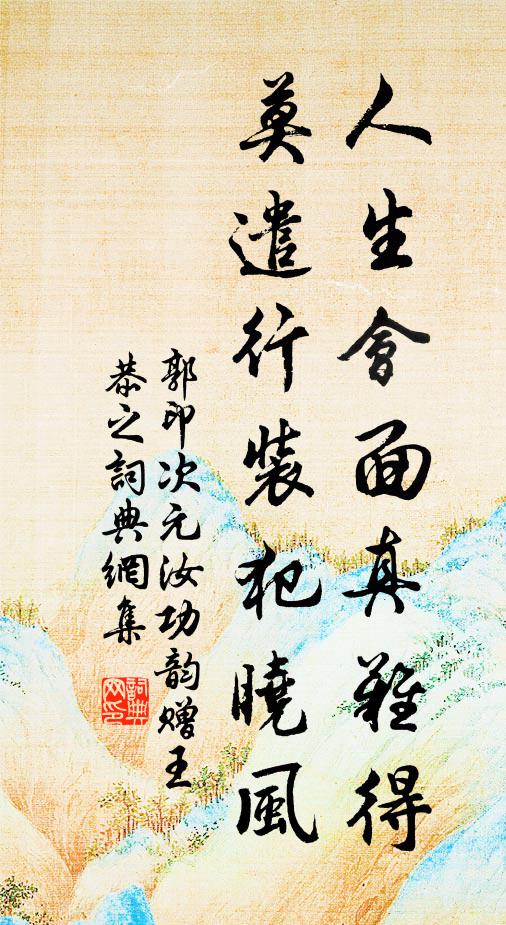 人生會面真難得
莫遣行裝犯曉風
郭印次元汝功韵贈王
恭之詞典網集
詞典網印